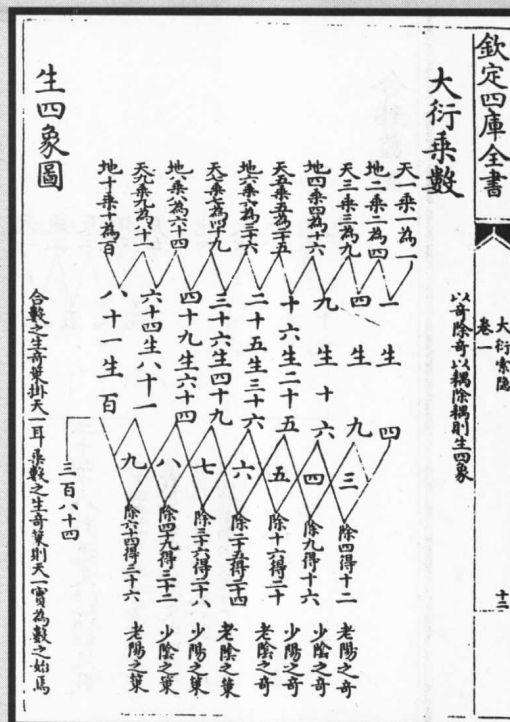 欽定四庫全書
大衍索隱
卷一
十二
大衍乘數
以奇除奇以耦除耦則生四象
天一乘一為一
地二乘二為四
天三乘三為九
地四乘四為十六
天五乘五為二十五
地六乘六為三十六
天七乘七為四十九
地八乘八為六十四
天九乘九為八十一
地十乘十為百
一生四
四生九
九生十六
十六生二十五
二十五生三十六
三十六生四十九
四十九生六十四
六十四生八十一
八十一生百
三
四
五
六
七
八
九
除四得十二
除九得十六
除十六得二十
除二十五得二十四
除三十六得二十八
除四十九得三十二
除六十四得三十六
老陽之奇
少陰之奇
少陽之奇
老陰之奇
老陰之策
少陽之策
少陰之策
老陽之策
三百八十四
生四象圖
合數之生奇策掛天一耳乘數之生奇策則天一實為數之始焉